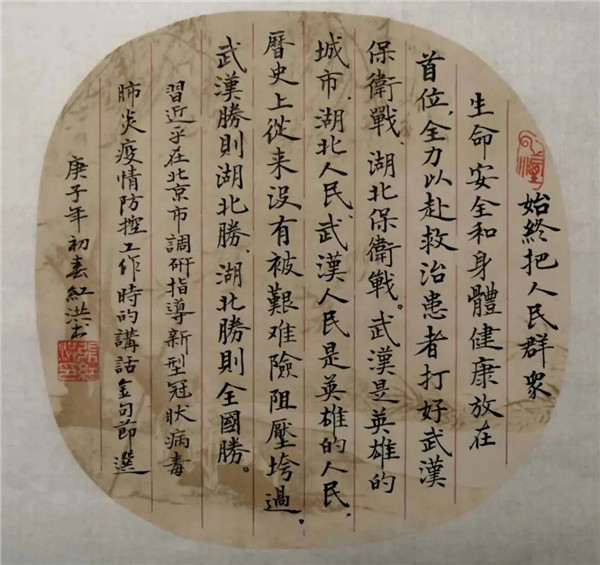 始終把人民群衆
生命安全和身體健康放在
首位,全力以赴救治患者打好武漢
保衛戰、湖北保衛戰。武漢是英雄的
城市、湖北人民、武漢人民是英雄的人民,
曆史上從来没有被艱难險阻壓垮過。
武漢勝則湖北勝、湖北勝則全國勝。
習近平在北京市調研指導新型冠狀病毒
肺炎疫情防控工作時的講話金句節選
庚子年初春紅洪书